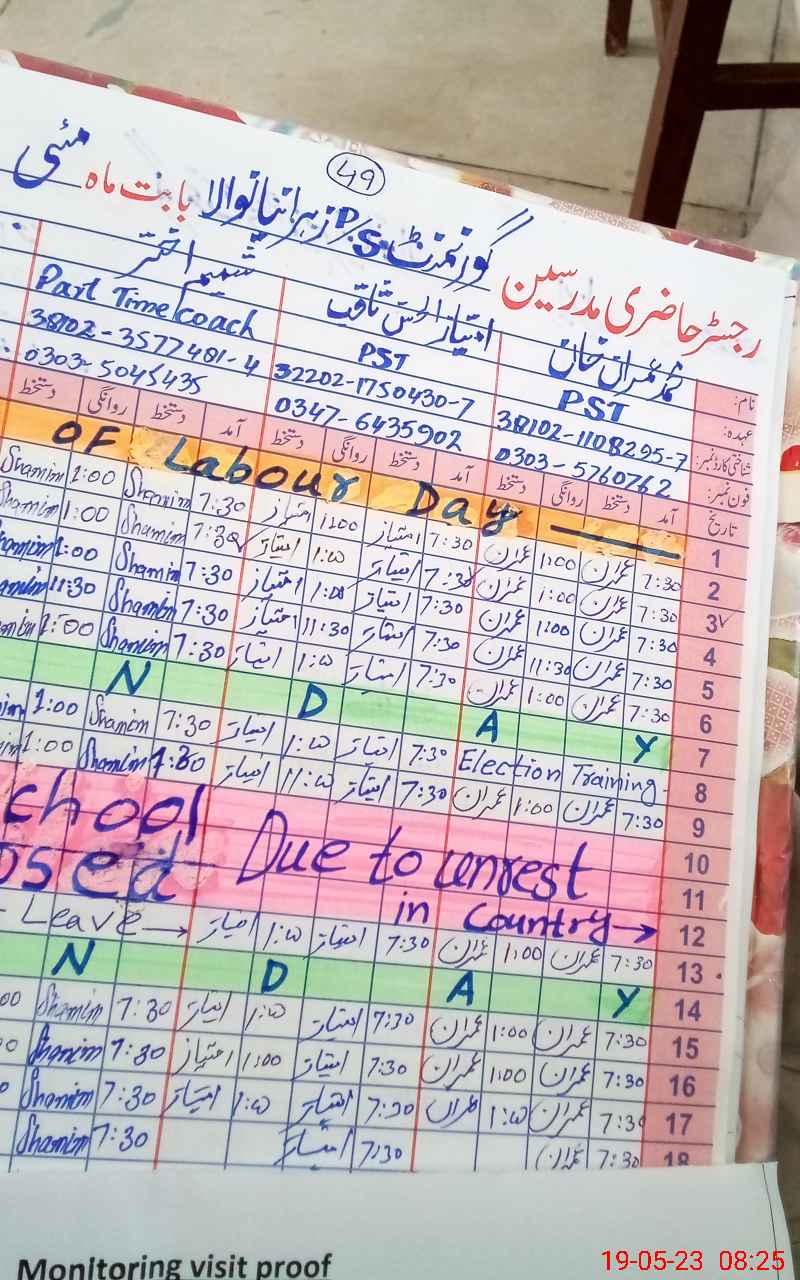 49
رجسٹر حاضری مدرسین گورنمنٹ P/S زہرانیانوالا بابت ماہ مئی
نام: محمد عمران خان امتیاز الحسن ثاقب شمیم اختر
عہدہ: PST PST Part Time Coach
شناختی کارڈ نمبر: 38102-1108295-7 32202-1750430-7 38102-3577481-4
فون نمبر: 0303-5760762 0347-6435902 0303-5045435
تاریخ آمد دستخط روانگی دستخط آمد دستخط روانگی دستخط آمد دستخط روانگی دستخط
OF Labour Day — 1
Shamim 1:00 Shamim 7:30 امتیاز 1:00 امتیاز 7:30 عمران 1:00 عمران 7:30 2
Shamim 1:00 Shamim 7:30 امتیاز 1:00 امتیاز 7:30 عمران 1:00 عمران 7:30 3✓
Shamim 1:00 Shamim 7:30 امتیاز 1:00 امتیاز 7:30 عمران 1:00 عمران 7:30 4
Shamim 11:30 Shamim 7:30 امتیاز 11:30 امتیاز 7:30 عمران 11:30 عمران 7:30 5
Shamim 1:00 Shamim 7:30 امتیاز 1:00 امتیاز 7:30 عمران 1:00 عمران 7:30 6
N D A Y 7
1:00 Shamim 7:30 امتیاز 1:00 امتیاز 7:30 Election Training 8
1:00 Shamim 7:30 امتیاز 11:00 امتیاز 7:30 عمران 1:00 عمران 7:30 9
chool Due to unrest 10
osed in Country → 11
12
Leave → امتیاز 1:00 امتیاز 7:30 عمران 1:00 عمران 7:30 13
N D A Y 14
00 Shamim 7:30 امتیاز 1:00 امتیاز 7:30 عمران 1:00 عمران 7:30 15
Shamim 7:30 امتیاز 1:00 امتیاز 7:30 عمران 1:00 عمران 7:30 16
Shamim 7:30 امتیاز 1:00 امتیاز 7:30 عمران 1:00 عمران 7:30 17
Shamim 7:30 امتیاز 7:30 عمران 7:30 18
Monitoring visit proof
19-05-23 08:25